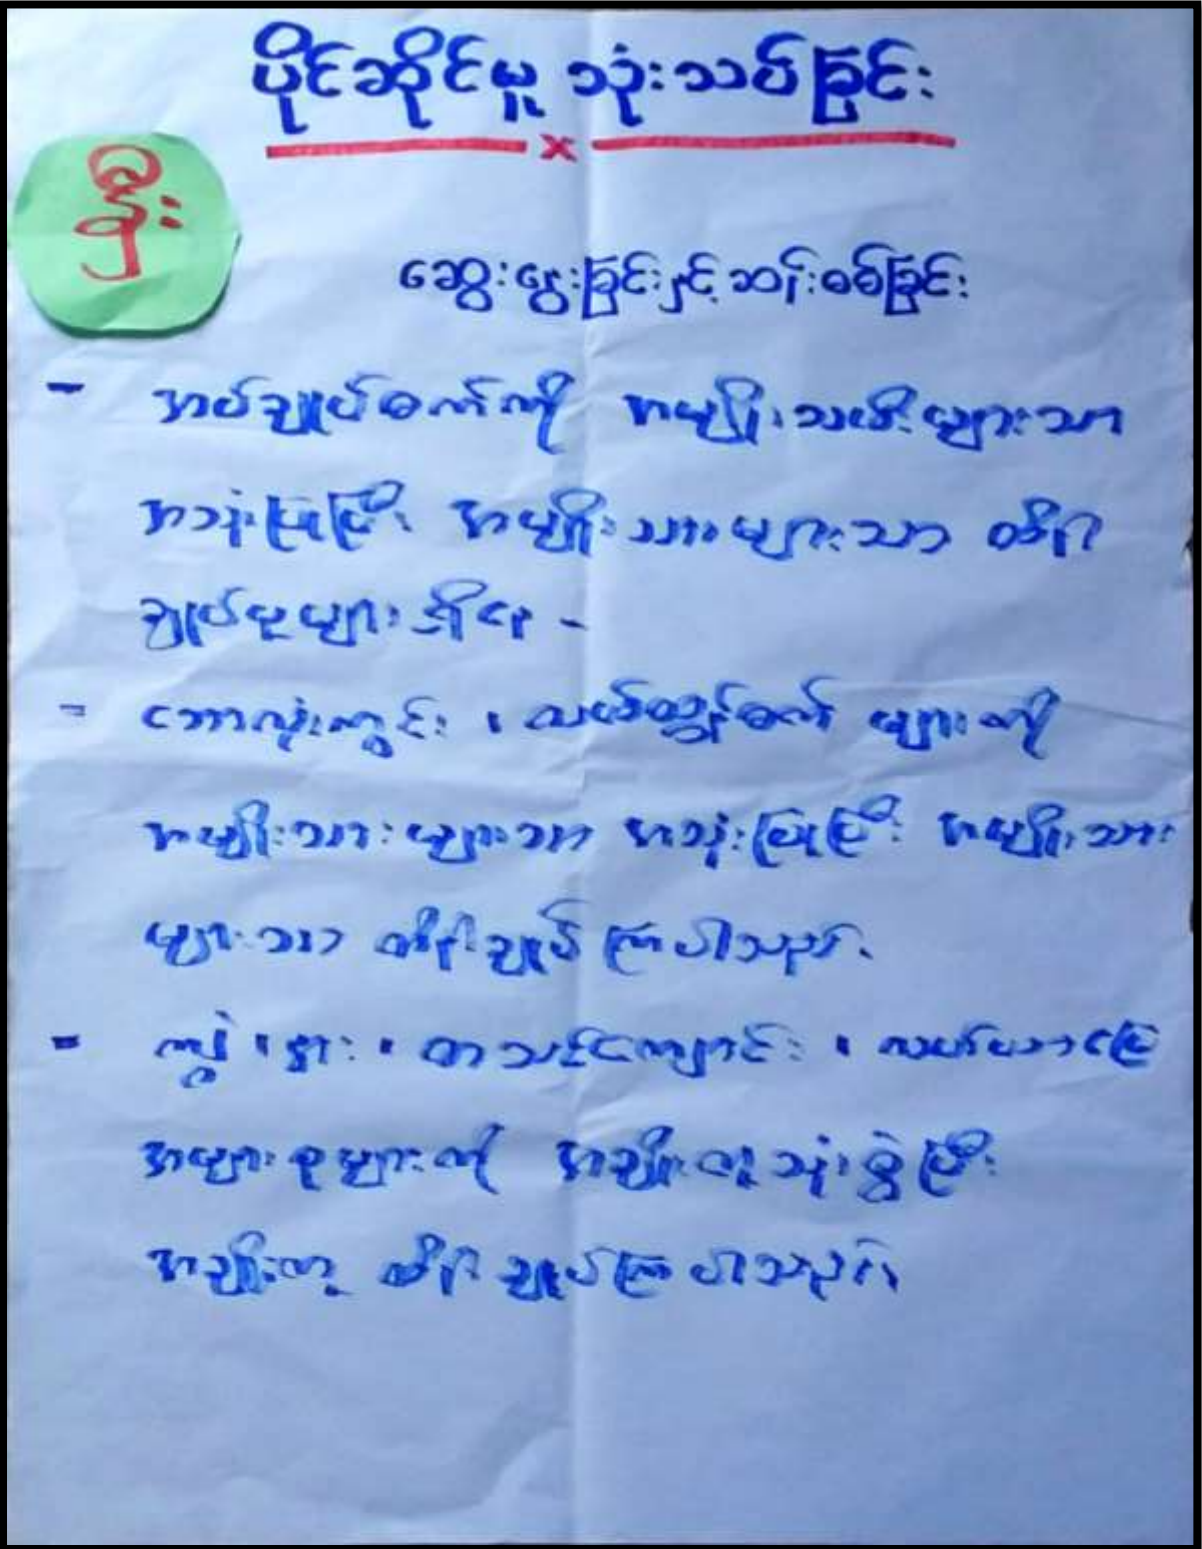 ပိုင်ဆိုင်မှု သုံးသပ်ခြင်း
x
ဆွေးနွေးခြင်းနှင့် ဆန်းစစ်ခြင်း
- အပ်ချုပ်စက်ကို အမျိုးသမီးများသာ
အသုံးပြုပြီး အမျိုးသားများသာ ထိန်း
ချုပ်မှုများရှိ၏ -
- ဘောလုံးကွင်း ၊ လယ်ထွန်စက် များကို
အမျိုးသားများသာ အသုံးပြုပြီး အမျိုးသား
များသာ ထိန်းချုပ် ကြပါသည်။
- ကျွဲ ၊ နွား ၊ စာသင်ကျောင်း ၊ လယ်ယာမြေ
အများစုများကို အချိုးတူ သုံးစွဲပြီး
အချိုးတူ ထိန်းချုပ်ကြပါသည်။